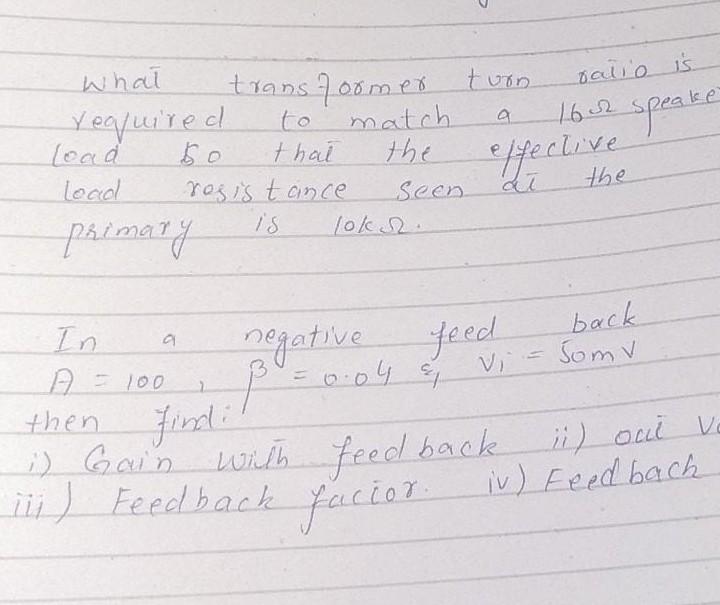 What transformer turn ratio is
reqquired to match a 16Ω speake
load so that the effective
load resistance seen at the
primary is 10kΩ.
In a negative feed back
A = 100 , β = 0.04 & Vi = 50mV
then find:
i) Gain with feed back ii) out Vo
iii) Feedback factor. iv) Feed back